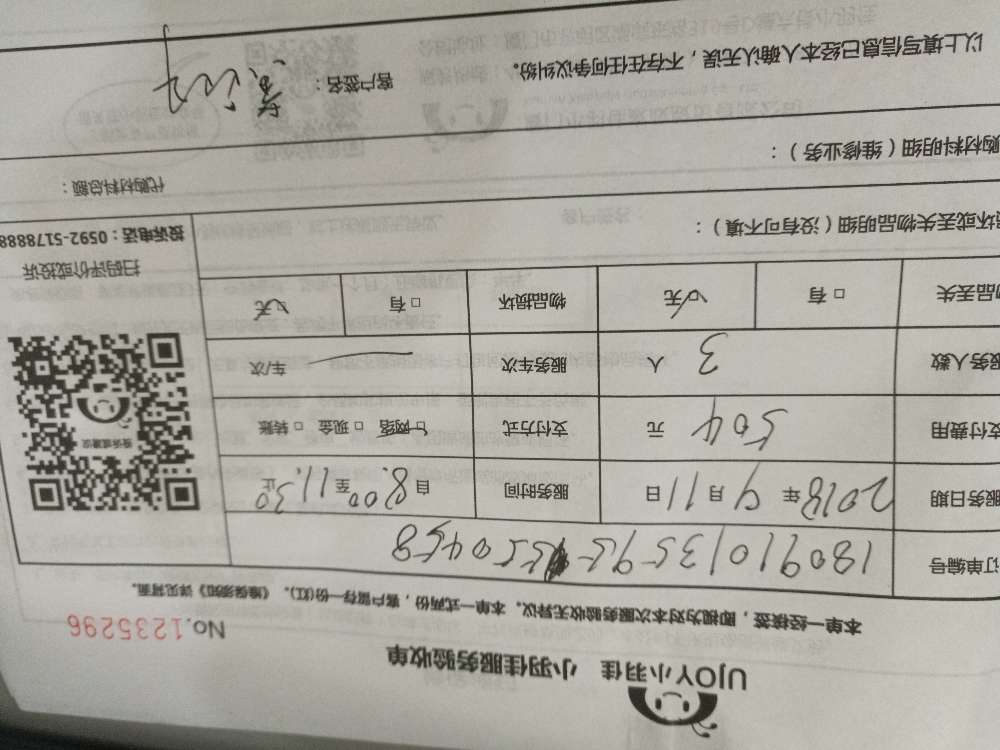 UJOY小羽佳 小羽佳服务验收单
No.1235296
本单一经核签，即视为对本次服务验收无异议。本单一式两份，客户留存一份(红)。《维保须知》详见背面。
订单编号
服务日期 2018年9月11日 服务时间 自8:00至11:30止
支付费用 504元 支付方式 ☑网络 □现金 □转账
服务人数 3人 服务车次 车/次
物品丢失 □有 ☑无 物品损坏 □有 ☑无
投诉或建议
扫码评价或投诉
投诉电话：0592-5178888
损坏或丢失物品明细（没有可不填）：
代购材料明细（维修业务）： 代购材料总额：
以上填写信息已经本人确认无误，不存在任何争议纠纷。 客户签名：